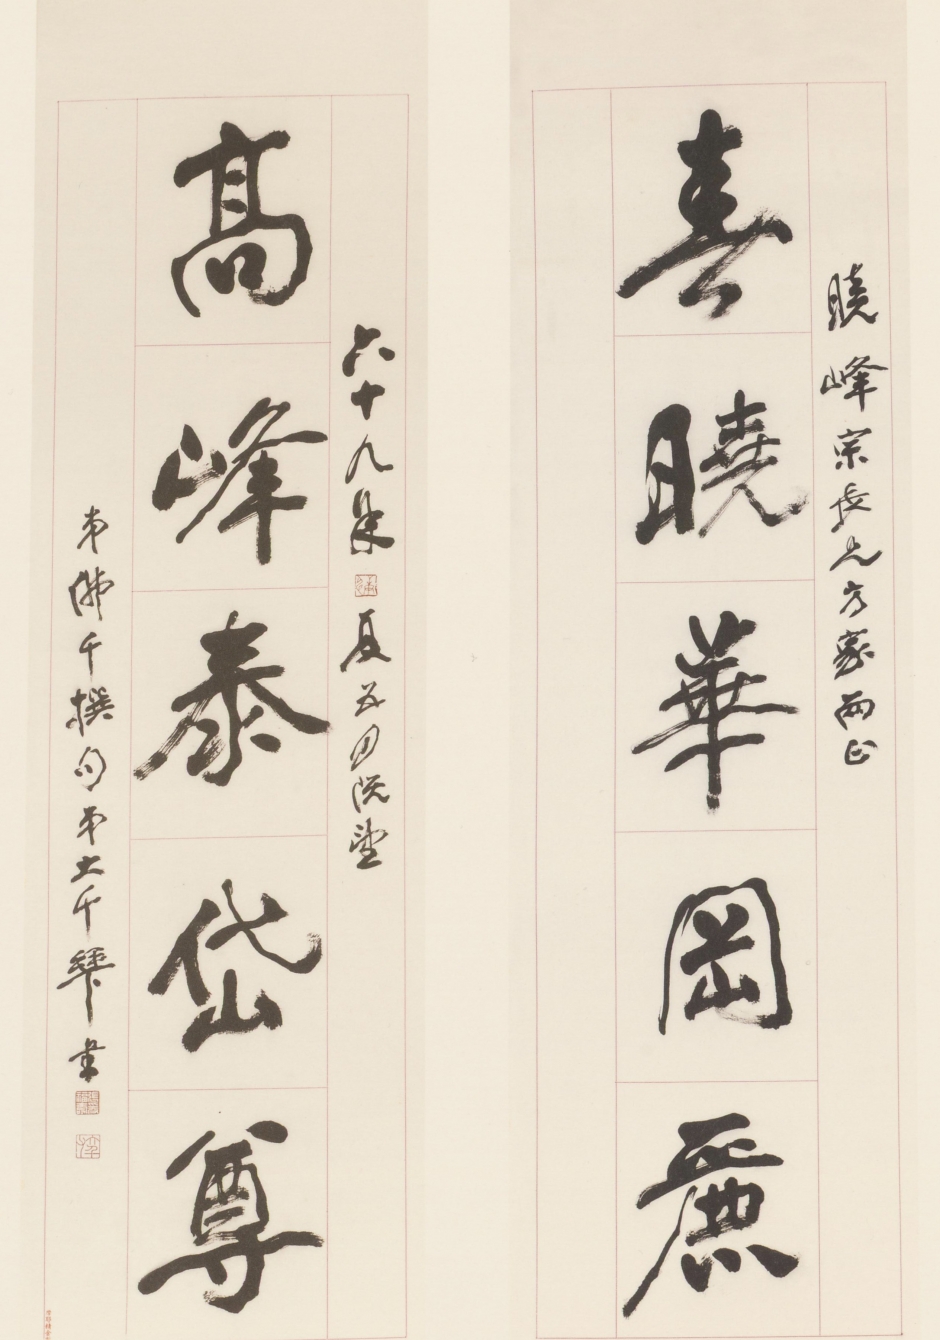 曉峰宗長兄方家兩正
春曉華岡麗
六十九年夏五月既望
高峰泰岱尊
弟佛千撰句弟大千張爰書